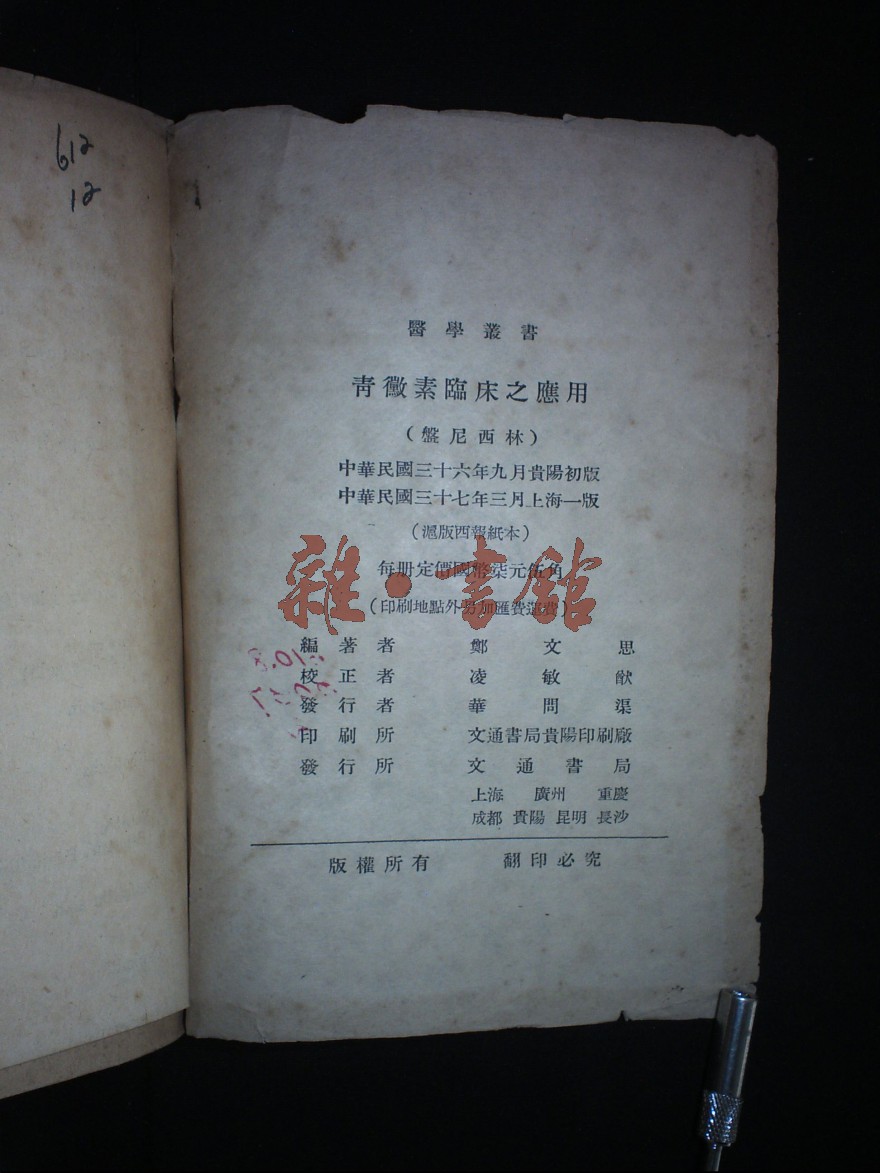 612
12
醫學叢書
青黴素臨床之應用
(盤尼西林)
中華民國三十六年九月貴陽初版
中華民國三十七年三月上海一版
(滬版西報紙本)
每册定價國幣柒元伍角
(印刷地點外另加匯費運費)
雜·書館
編著者 鄭文思
校正者 凌敏猷
發行者 華問渠
印刷所 文通書局貴陽印刷廠
發行所 文通書局
上海 廣州 重慶
成都 貴陽 昆明 長沙
版權所有 翻印必究